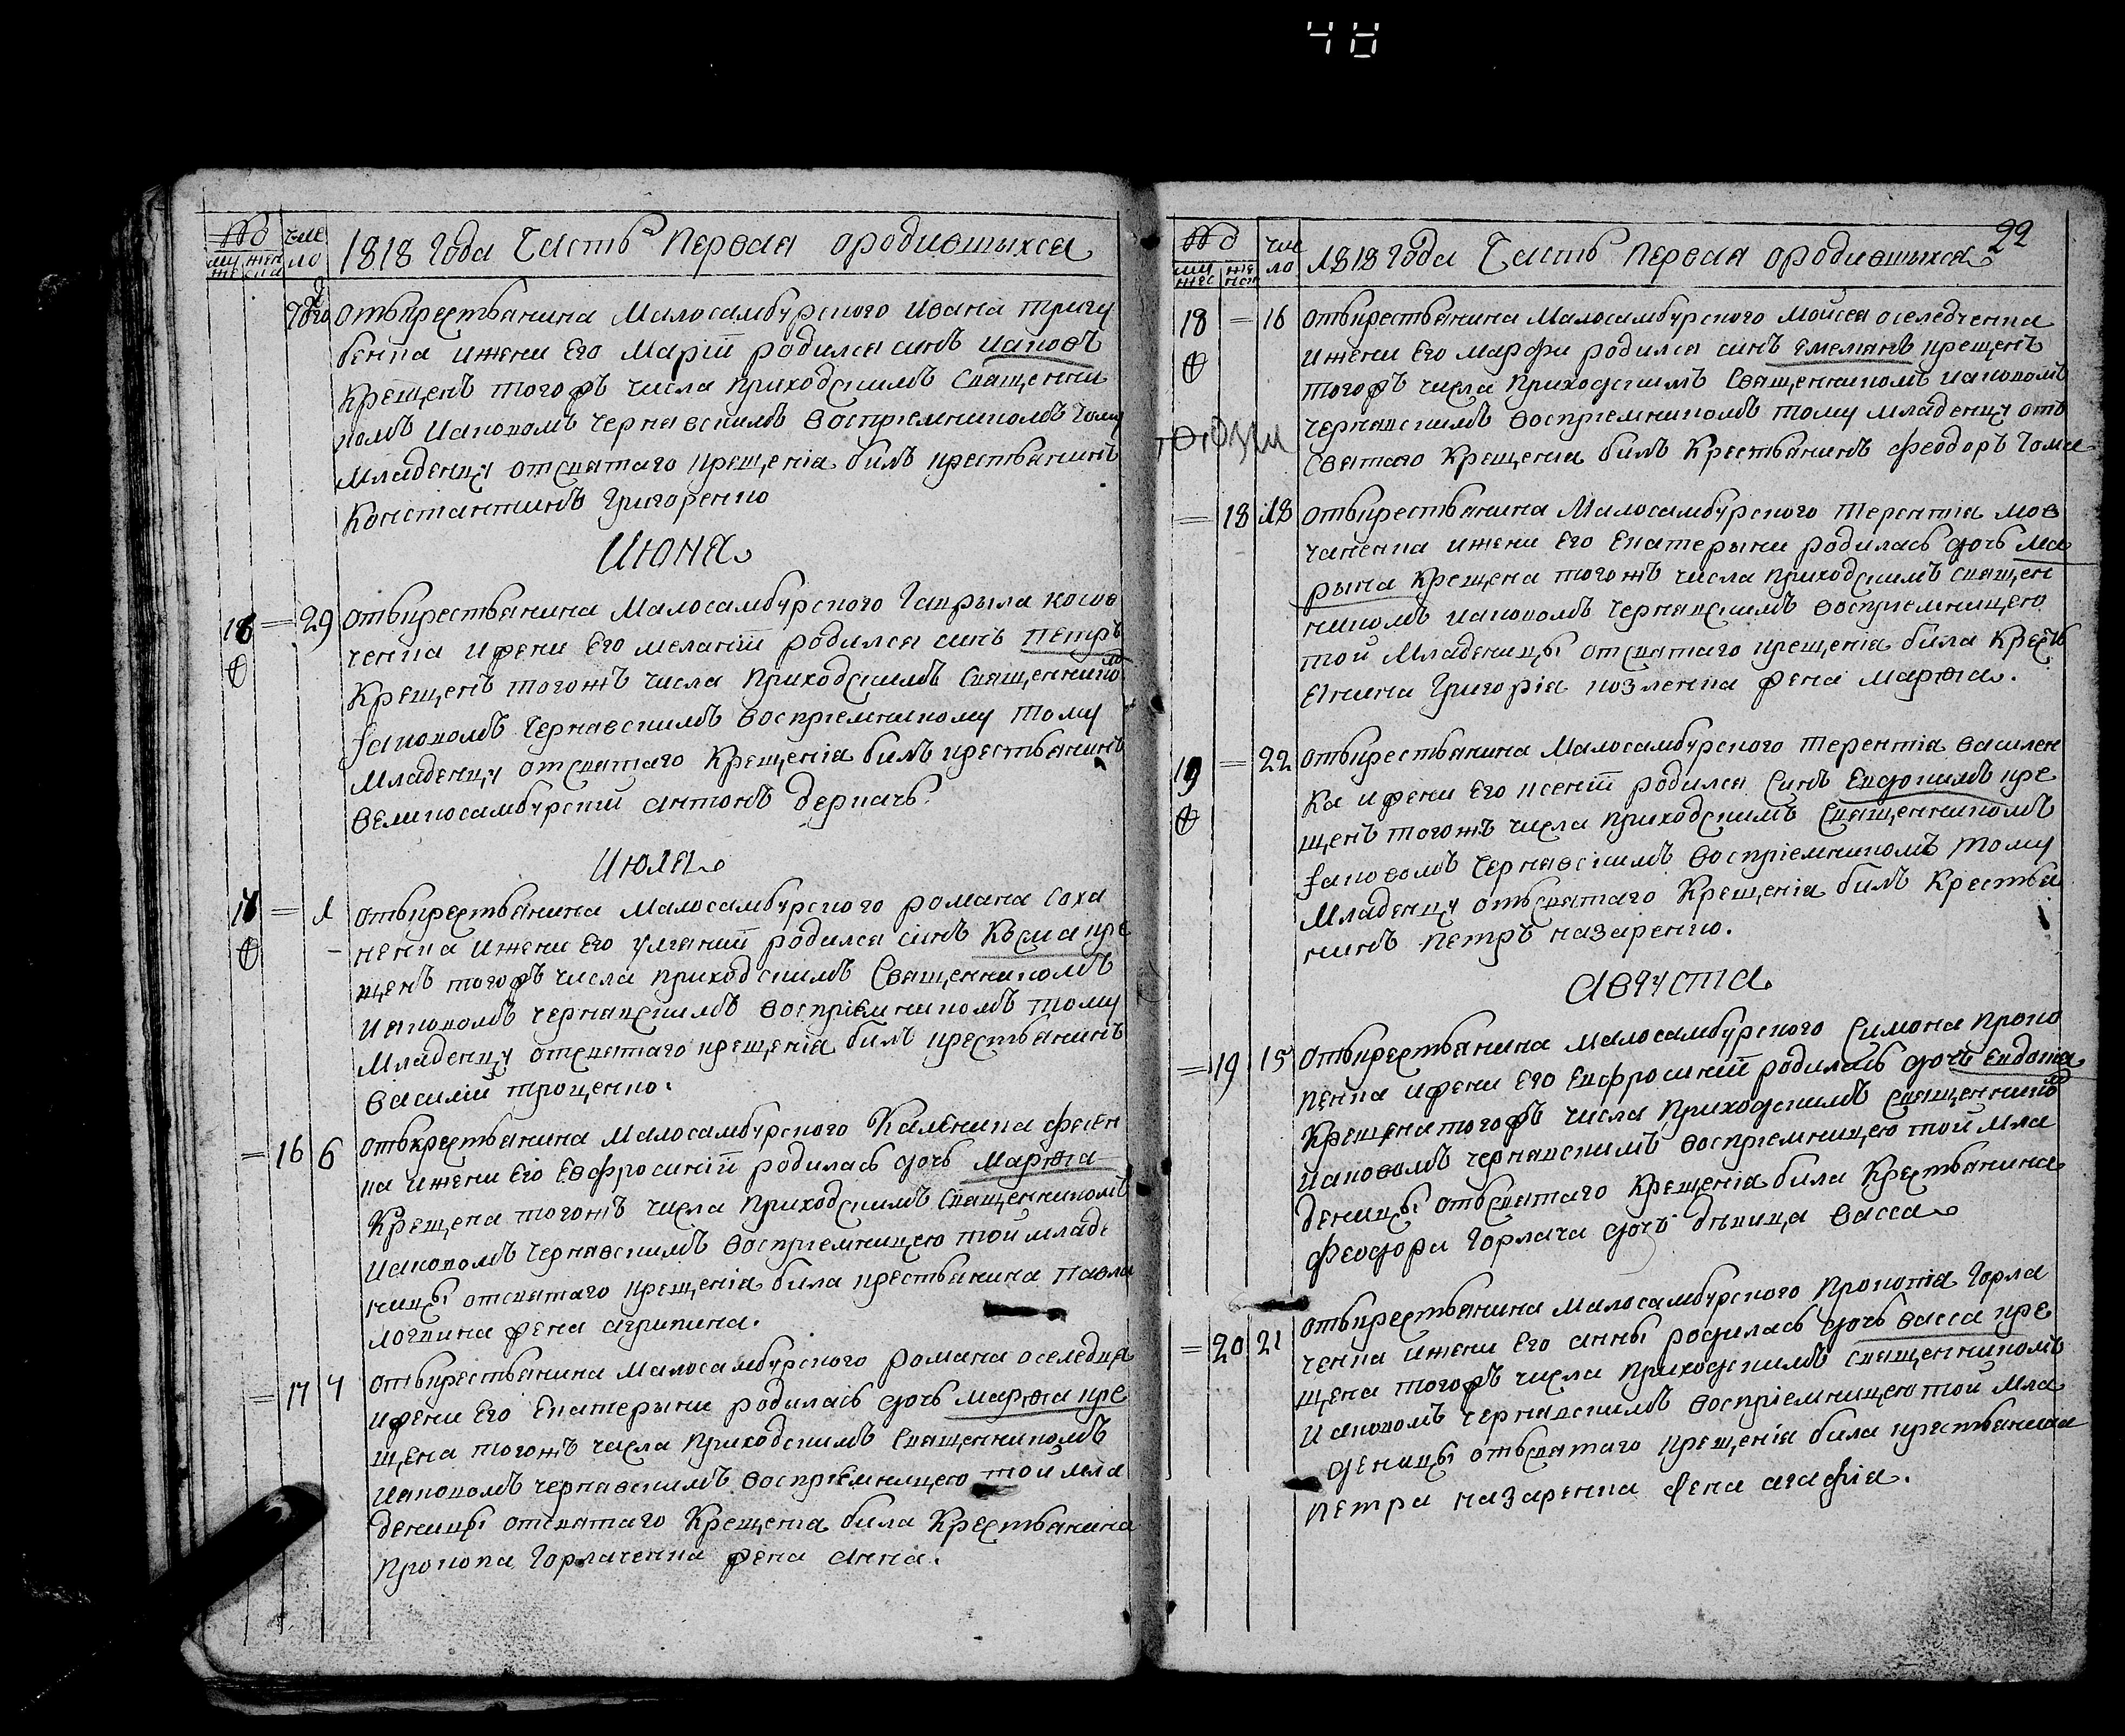 48
№ чис
муже жен ска ло 1818 Года Часть Первая ородившихся
Того отъкрестьянина Малосамбурского Ивана Тригу
бенка ижени Его Маріи родился синъ Иаковъ
Крещенъ тогожъ числа приходскимъ Священни
комъ Иаковомъ Чернявскимъ Восприемникомъ Тому
Младенцу отсвятаго крещенія билъ крестьянинъ
Константинъ Григоренко
Июня
18 = 29 отъкрестьянина Малосамбурского Гаврыла косов
ченка ижени Его меланіи родился синъ Петръ
Крещенъ тогожъ числа Приходскимъ Священникомъ
Іаковомъ Чернявскимъ Восприемникому Тому
Младенцу отсвятаго Крещенія билъ крестьянинъ
Великосамбурский антонъ деркачъ.
Июля
1 отъкрестьянина Малосамбурского романа Соха
ненка ижени Его улианіи родился синъ Косма кре
щенъ тогожъ числа приходскимъ Священникомъ
Иаковомъ Чернявскимъ Восприемникомъ тому
Младенцу отсвятаго крещенія билъ крестьянинъ
Василий троценко.
= 16 6 отъкрестьянина Малосамбурского Каленика фесен
ка ижени Его Евфросиніи родилась дочь Марѳа
Крещена тогожъ числа приходскимъ Священникомъ
Иаковомъ Чернявскимъ Восприемницею той младе
ницы отсвятаго крещенія била крестьянина Павла
логвина жена агрипина.
= 17 7 отъкрестьянина Малосамбурского романа оселедца
ижени Его Екатерыни родилась дочь марѳа кре
щена тогожъ числа приходскимъ Священникомъ
Иаковомъ Чернявскимъ Восприемницею той мла
деницы отсвятаго Крещенія била Крестьянина
Прокопа Горлаченка жена анна.
22
№ чис
мужес женск ло 1818 Года Часть Первая ородившихся
18 = 16 отъкрестьянина Малосамбурского Мойсея оселедченка
ижени Его марфи родился синъ Емелянъ крещенъ
тогожъ числа приходскимъ Священникомъ Иаковомъ
Чернявскимъ Восприемникомъ тому младенцу отъ
Святаго Крещенія билъ Крестьянинъ феодоръ Гома
= 18 18 отъкрестьянина Малосамбурского Терентіа мов
чаненка ижени Его Екатерыни родилась дочь Ма
рына Крещена тогожъ числа приходскимъ Священ
никомъ Иаковомъ Чернявскимъ Восприемницею
той Младеницы отсвятаго крещенія била Кресть
янина Григорія козленка жена марѳа.
19 = 22 отъкрестьянина Малосамбурского Терентіа василен
Ка ижени Его ксеніи родился Синъ Евдокимъ кре
щенъ тогожъ числа приходскимъ Священникомъ
Іаковомъ Чернявскимъ Восприемникомъ тому
Младенцу отъсвятаго Крещенія билъ Крестья
нинъ Петръ назаренко.
Августа
= 19 15 отъкрестьянина Малосамбурского Симона Проко
пенка ижени Его Евфросиніи родилась дочь Евдокіа
Крещена тогожъ числа Приходскимъ Священникомъ
Иаковомъ Чернявскимъ Восприемницею той мла
деницы отъсвятаго Крещенія била Крестьянина
феодора Горлача дочь дѣвица Васса
= 20 21 отъкрестьянина Малосамбурского Прокопіа Горла
ченка ижени Его анны родилась дочь васса кре
щена тогожъ числа Приходскимъ Священникомъ
Иаковомъ Чернявскимъ Восприемницею той Мла
деницы отъсвятаго крещенія била крестьянина
Петра назаренка жена агафіа.